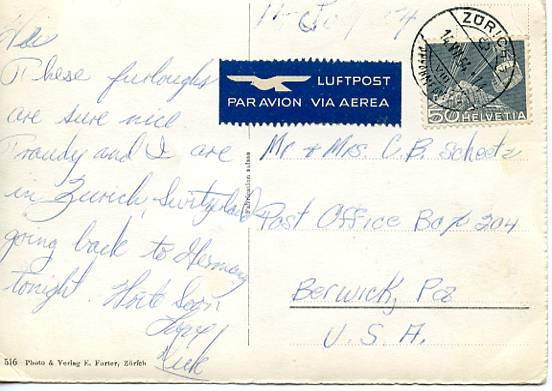 Hi
These furloughs
are sure nice
Traudy and I are
in Zurich, Switzerland
going back to Germany
tonight. Write Soon
Love
Nick
LUFTPOST
PAR AVION VIA AEREA
ZÜRICH
50 HELVETIA
Mr & Mrs. C.B. Scheetz
Post Office Box 204
Berwick, Pa
U.S.A.
Fabrication suisse
516 Photo & Verlag E. Furter, Zürich